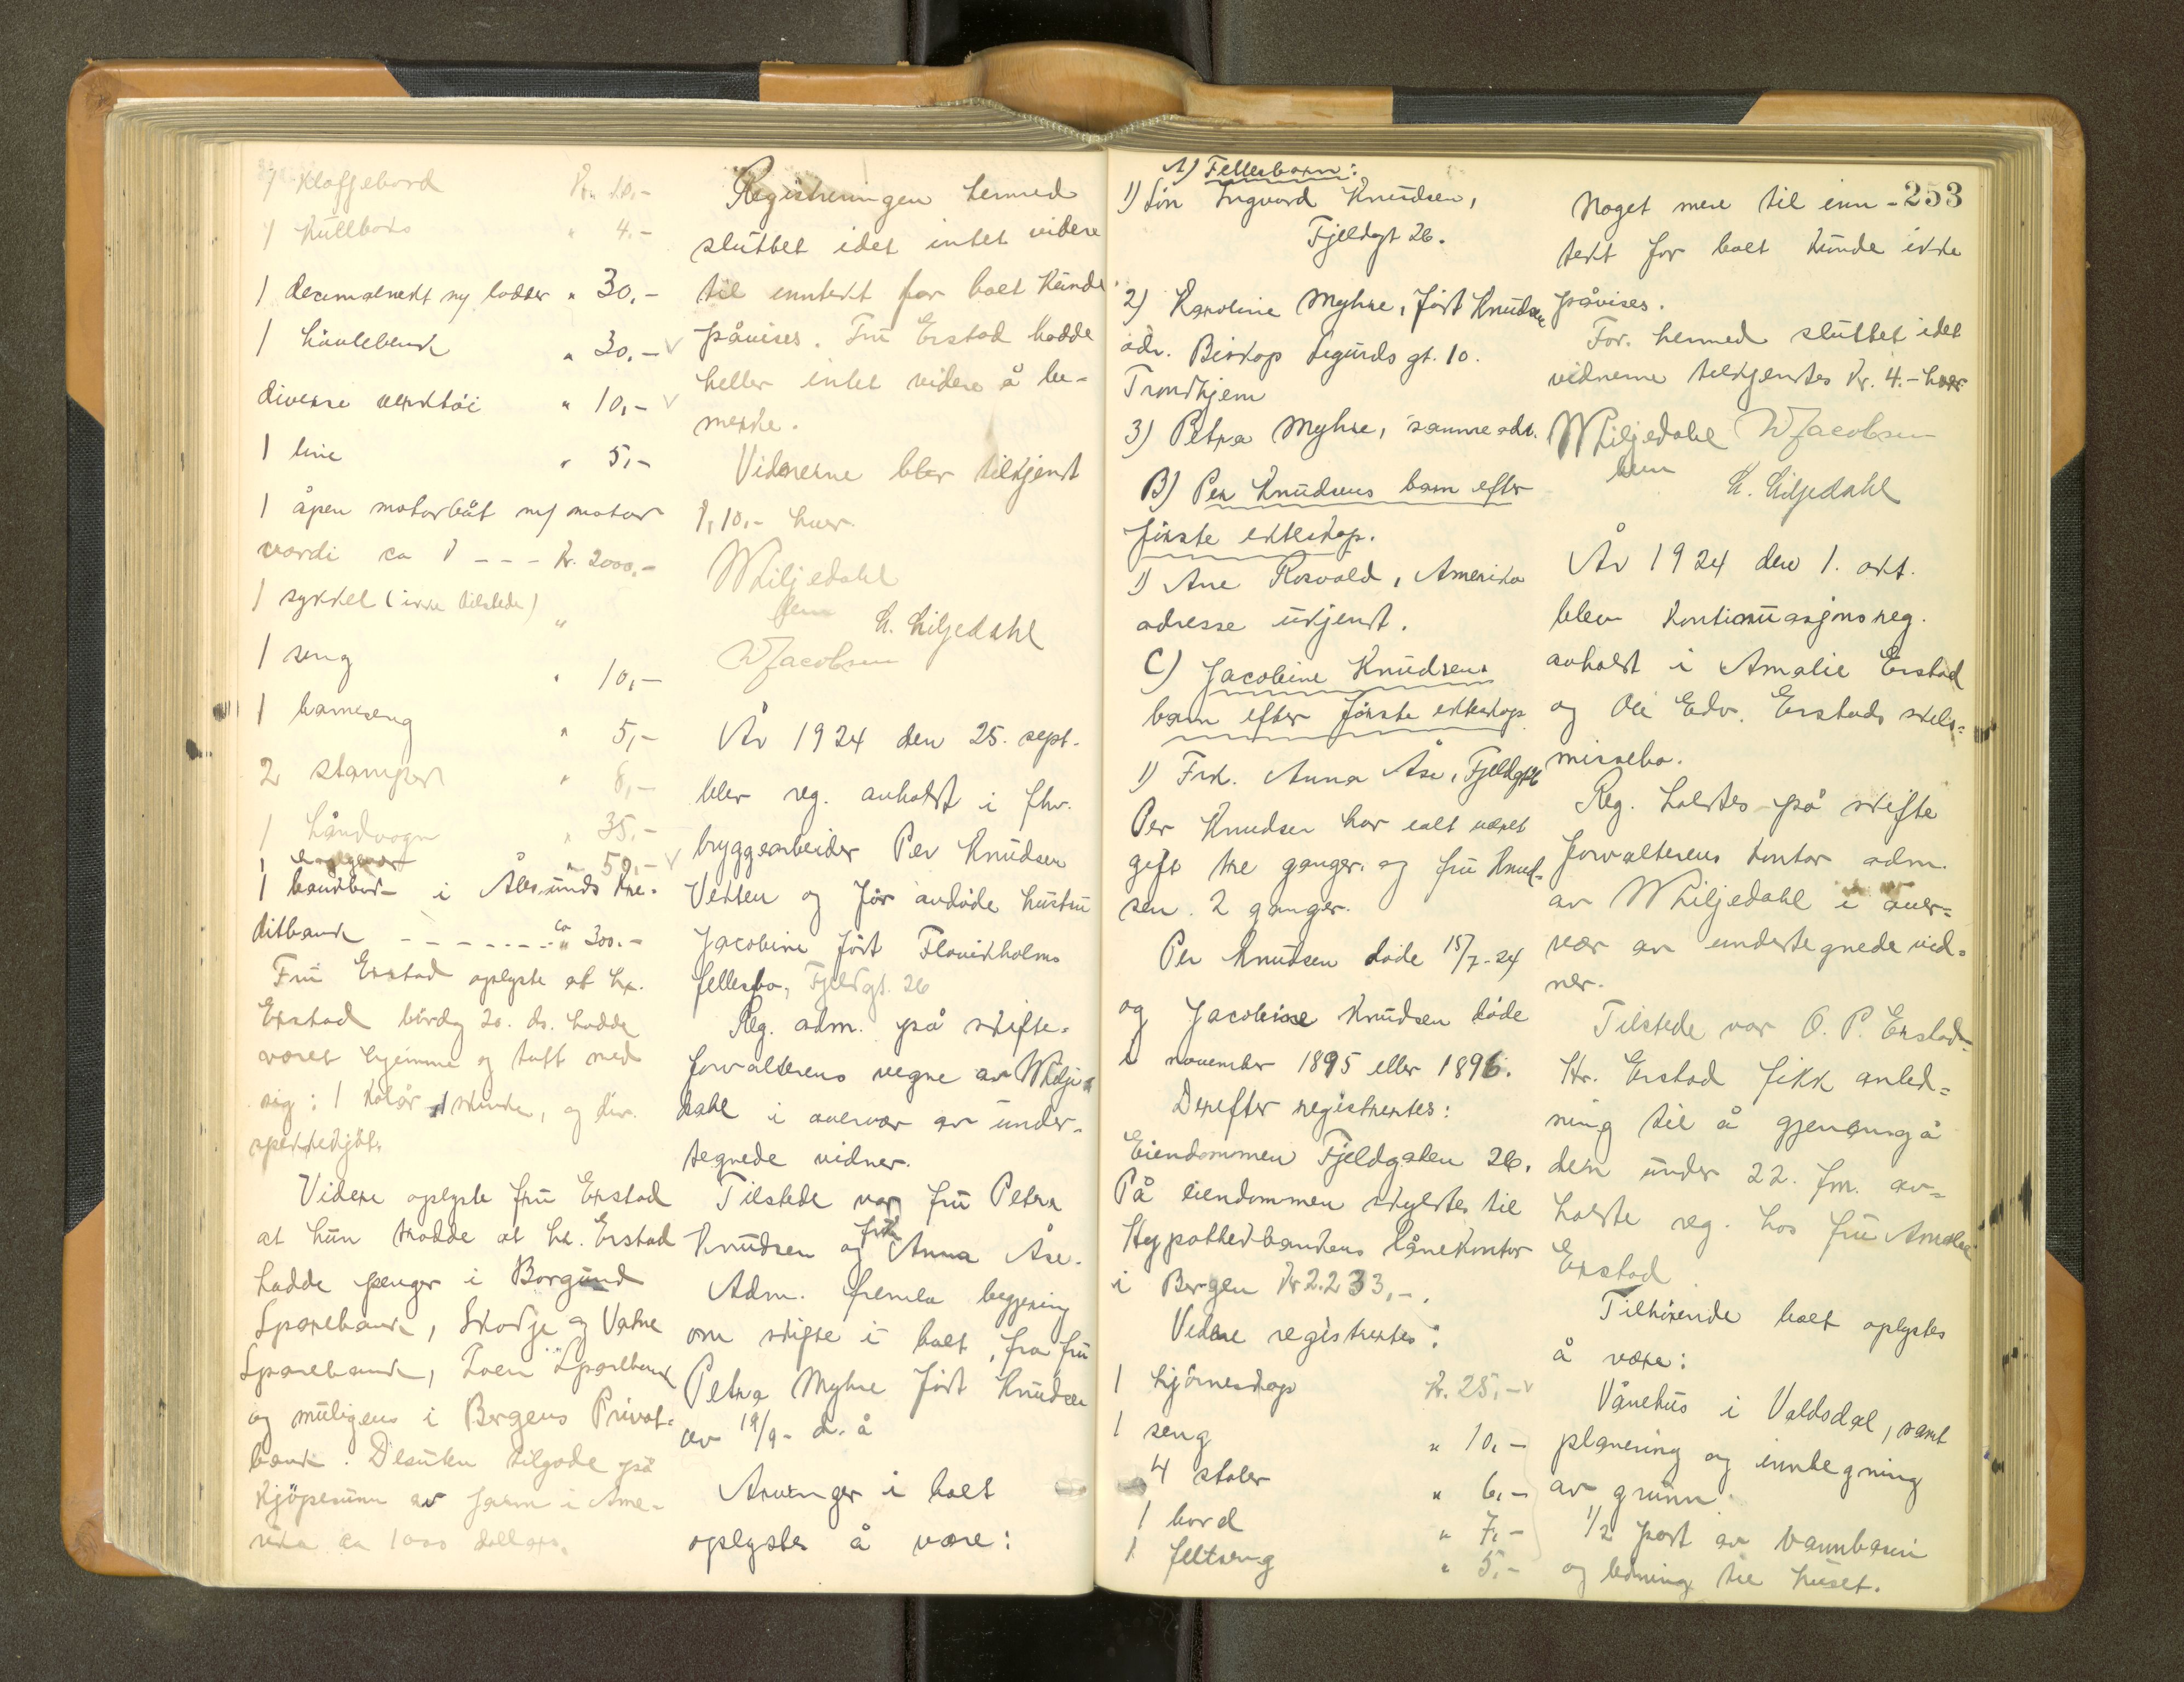 1 Klaffebord Kr. 10.-
1 Kullboks " 4.-
1 decimalvekt m/ lodder " 30,-
1 høvlebenk " 30.- v
diverse verktøi " 10,- v
1 line " 5,-
1 åpen motorbåt m/ motor
værdi ca 1 - - - Kr. 2000,-
1 sykkel (ikke tilstede) "
1 seng " 10,-
1 barneseng " 5,-
2 stamper " 8,-
1 håndvogn " 35.-
1 haglgevær " 50,- v
1 bankbok i Ålesunds Kre-
ditbank - - - - - - - ca " 300.-
Fru Erstad oplyste at hr.
Erstad lørdag 20. ds. hadde
været hjemme og tatt med
sig: 1 kobår, 1 skinke, og div.
spekekjøt.
Videre oplyste fru Erstad
at hun trodde at hr. Erstad
hadde penger i Borgund
Sparebank, Skodje og Vatne
Sparebank, Loen Sparebank
og muligens i Bergens Privat-
bank. Desuten tilgode på
kjøpesum av farm i Ame-
rika ca 1000 dollars.
Registreringen hermed
sluttet idet intet videre
til inntekt for boet kunde
påvises. Fru Erstad hadde
heller intet videre å be-
merke.
Vidnerne blev tilkjent
kr. 10.- hver.
WLiljedahl
H. Liljedahl
WJacobsen
År 1924 den 25. sept.
blev reg. avholdt i fhv.
bryggearbeider Per Knudsen
Vekten og før avdøde hustru
Jacobine født Flovikholms
fellesbo, Fjeldgt. 26
Reg. adm. på skifte-
forvalterens vegne av WLilje-
dahl i overvær av under-
tegnede vidner.
Tilstede var fru Petra
Knudsen og frk. Anna Åse.
Adm. fremla begjæring
om skifte i boet, fra fru
Petra Myhre født Knudsen
av 19/9- d. å
Arvinger i boet
oplystes å være:
253
A) Fellesbarn:
1) Søn Ingvard Knudsen,
Fjeldgt 26.
2) Karoline Myhre, født Knudsen
adr. Biskop Sigurds gt. 10.
Trondhjem
3) Petra Myhre, samme adr.
B) Per Knudsens barn efter
første ekteskap.
1) Ane Rosvald, Amerika
adresse ukjent.
C) Jacobine Knudsens
barn efter første ekteskap
1) Frk. Anna Åse, Fjeldgt 26
Per Knudsen har ialt været
gift tre ganger og fru Knud-
sen 2 ganger.
Per Knudsen døde 15/7-24
og Jacobine Knudsen døde
i november 1895 eller 1896.
Derefter registrertes:
Eiendommen Fjeldgaten 26.
På eiendommen skyldtes til
Hypothekbankens lånekontor
i Bergen Kr 2.233,-.
Videre registrertes:
1 hjørneskap Kr. 25,- v
1 seng " 10,-
4 stoler " 6,-
1 bord " 7,-
1 feltseng " 5,-
Noget mere til inn-
tekt for boet kunde ikke
påvises.
For. hermed sluttet idet
vidnerne tilkjentes kr. 4.- hver
WLiljedahl WJacobsen
H. Liljedahl
År 1924 den 1. okt.
blev kontinuasjonsreg.
avholdt i Amalie Erstad
og Ole Edv. Erstads skils-
missebo.
Reg. holdtes på skifte
forvalterens kontor adm.
av WLiljedahl i over-
vær av undertegnede vid-
ner.
Tilstede var O. P. Erstad.
Hr. Erstad fikk anled-
ning til å gjennemgå
den under 22. fm. av-
holdte reg. hos fru Amalie
Erstad.
Tilhørende boet oplystes
å være:
Vånehus i Valdsdal, samt
planering og innhegning
av grunn.
1/2 part av vannbasin
og ledning til huset.